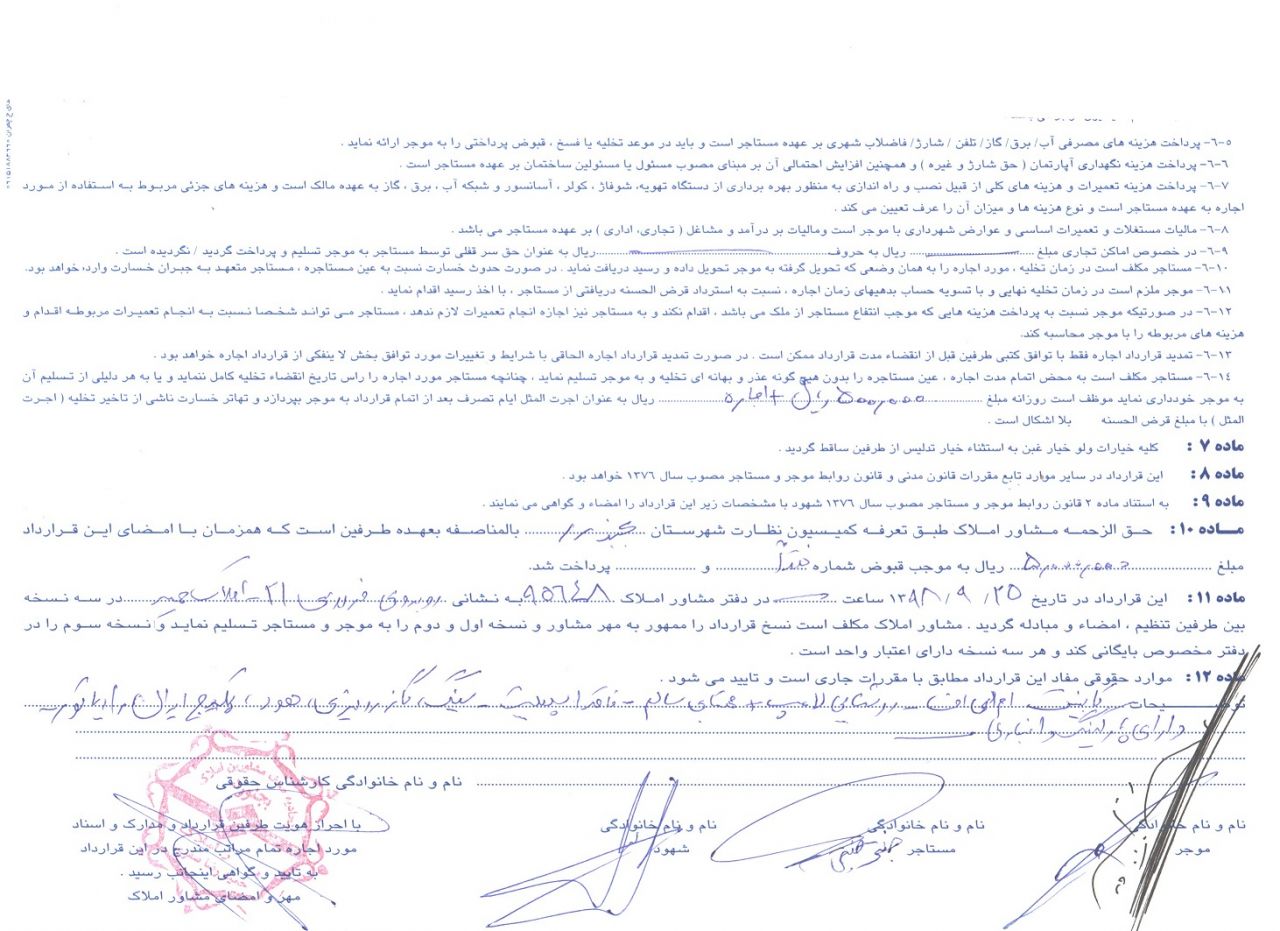 ۵-۶- پرداخت هزینه های مصرفی آب/ برق/ گاز/ تلفن / شارژ/ فاضلاب شهری بر عهده مستاجر است و باید در موعد تخلیه یا فسخ ، قبوض پرداختی را به موجر ارائه نماید .
۶-۶- پرداخت هزینه نگهداری آپارتمان ( حق شارژ و غیره ) و همچنین افزایش احتمالی آن بر مبنای مصوب مسئول یا مسئولین ساختمان بر عهده مستاجر است .
۷-۶- پرداخت هزینه تعمیرات و هزینه های کلی از قبیل نصب و راه اندازی به منظور بهره برداری از دستگاه تهویه، شوفاژ ، کولر ، آسانسور و شبکه آب ، برق ، گاز به عهده مالک است و هزینه های جزئی مربوط به استفاده از مورد
اجاره به عهده مستاجر است و نوع هزینه ها و میزان آن را عرف تعیین می کند .
۸-۶- مالیات مستغلات و تعمیرات اساسی و عوارض شهرداری با موجر است ومالیات بر درآمد و مشاغل ( تجاری، اداری ) بر عهده مستاجر می باشد .
۹-۶- در خصوص اماکن تجاری مبلغ .......... ریال به حروف .......... ریال به عنوان حق سر قفلی توسط مستاجر به موجر تسلیم و پرداخت گردید / نگردیده است .
۱۰-۶- مستاجر مکلف است در زمان تخلیه ، مورد اجاره را به همان وضعی که تحویل گرفته به موجر تحویل داده و رسید دریافت نماید . در صورت حدوث خسارت نسبت به عین مستاجره ، مستاجر متعهد به جبران خسارت وارده خواهد بود.
۱۱-۶- موجر ملزم است در زمان تخلیه نهایی و با تسویه حساب بدهیهای زمان اجاره ، نسبت به استرداد قرض الحسنه دریافتی از مستاجر ، با اخذ رسید اقدام نماید .
۱۲-۶- در صورتیکه موجر نسبت به پرداخت هزینه هایی که موجب انتفاع مستاجر از ملک می باشد ، اقدام نکند و به مستاجر نیز اجازه انجام تعمیرات لازم ندهد ، مستاجر می تواند شخصا نسبت به انجام تعمیرات مربوطه اقدام و
هزینه های مربوطه را با موجر محاسبه کند.
۱۳-۶- تمدید قرارداد اجاره فقط با توافق کتبی طرفین قبل از انقضاء مدت قرارداد ممکن است . در صورت تمدید قرارداد اجاره الحاقی با شرایط و تغییرات مورد توافق بخش لا ینفکی از قرارداد اجاره خواهد بود .
۱۴-۶- مستاجر مکلف است به محض اتمام مدت اجاره ، عین مستاجره را بدون هیچ گونه عذر و بهانه ای تخلیه و به موجر تسلیم نماید ، چنانچه مستاجر مورد اجاره را راس تاریخ انقضاء تخلیه کامل ننماید و یا به هر دلیلی از تسلیم آن
به موجر خودداری نماید موظف است روزانه مبلغ ..... ۵۰۰٫۰۰۰ ریال + اجاره ..... ریال به عنوان اجرت المثل ایام تصرف بعد از اتمام قرارداد به موجر بپردازد و تهاتر خسارت ناشی از تاخیر تخلیه ( اجرت
المثل ) با مبلغ قرض الحسنه بلا اشکال است .
ماده ۷ : کلیه خیارات ولو خیار غبن به استثناء خیار تدلیس از طرفین ساقط گردید .
ماده ۸ : این قرارداد در سایر موارد تابع مقررات قانون مدنی و قانون روابط موجر و مستاجر مصوب سال ۱۳۷۶ خواهد بود .
ماده ۹ : به استناد ماده ۲ قانون روابط موجر و مستاجر مصوب سال ۱۳۷۶ شهود با مشخصات زیر این قرارداد را امضاء و گواهی می نمایند .
ماده ۱۰ : حق الزحمه مشاور املاک طبق تعرفه کمیسیون نظارت شهرستان .......... بالمناصفه بعهده طرفین است که همزمان با امضای این قرارداد
مبلغ ..... ۵٫۰۰۰٫۰۰۰ ریال به موجب قبوض شماره نقداً و .......... پرداخت شد.
ماده ۱۱ : این قرارداد در تاریخ ۱۳۹۸/۹/۲۵ ساعت ..... در دفتر مشاور املاک ۹۵۶۴۸ به نشانی روبروی ۲۱ - املاک در سه نسخه
بین طرفین تنظیم ، امضاء و مبادله گردید . مشاور املاک مکلف است نسخ قرارداد را ممهور به مهر مشاور و نسخه اول و دوم را به موجر و مستاجر تسلیم نماید و نسخه سوم را در
دفتر مخصوص بایگانی کند و هر سه نسخه دارای اعتبار واحد است .
ماده ۱۲ : موارد حقوقی مفاد این قرارداد مطابق با مقررات جاری است و تایید می شود .
توضیحات کابینت ام دی اف - روشنایی لامپ + سالم - فاقد اسپلیت - سینک گاز رومیزی، هود، پکیج ایران رادیاتور
دارای پارکینگ و انباری
نام و نام خانوادگی کارشناس حقوقی
نام و نام خانوادگی
موجر
نام و نام خانوادگی
مستاجر
نام و نام خانوادگی
شهود
با احراز هویت طرفین قرارداد و مدارک و اسناد
مورد اجاره تمام مراتب مندرج در این قرارداد
به تایید و گواهی اینجانب رسید .
مهر و امضای مشاور املاک